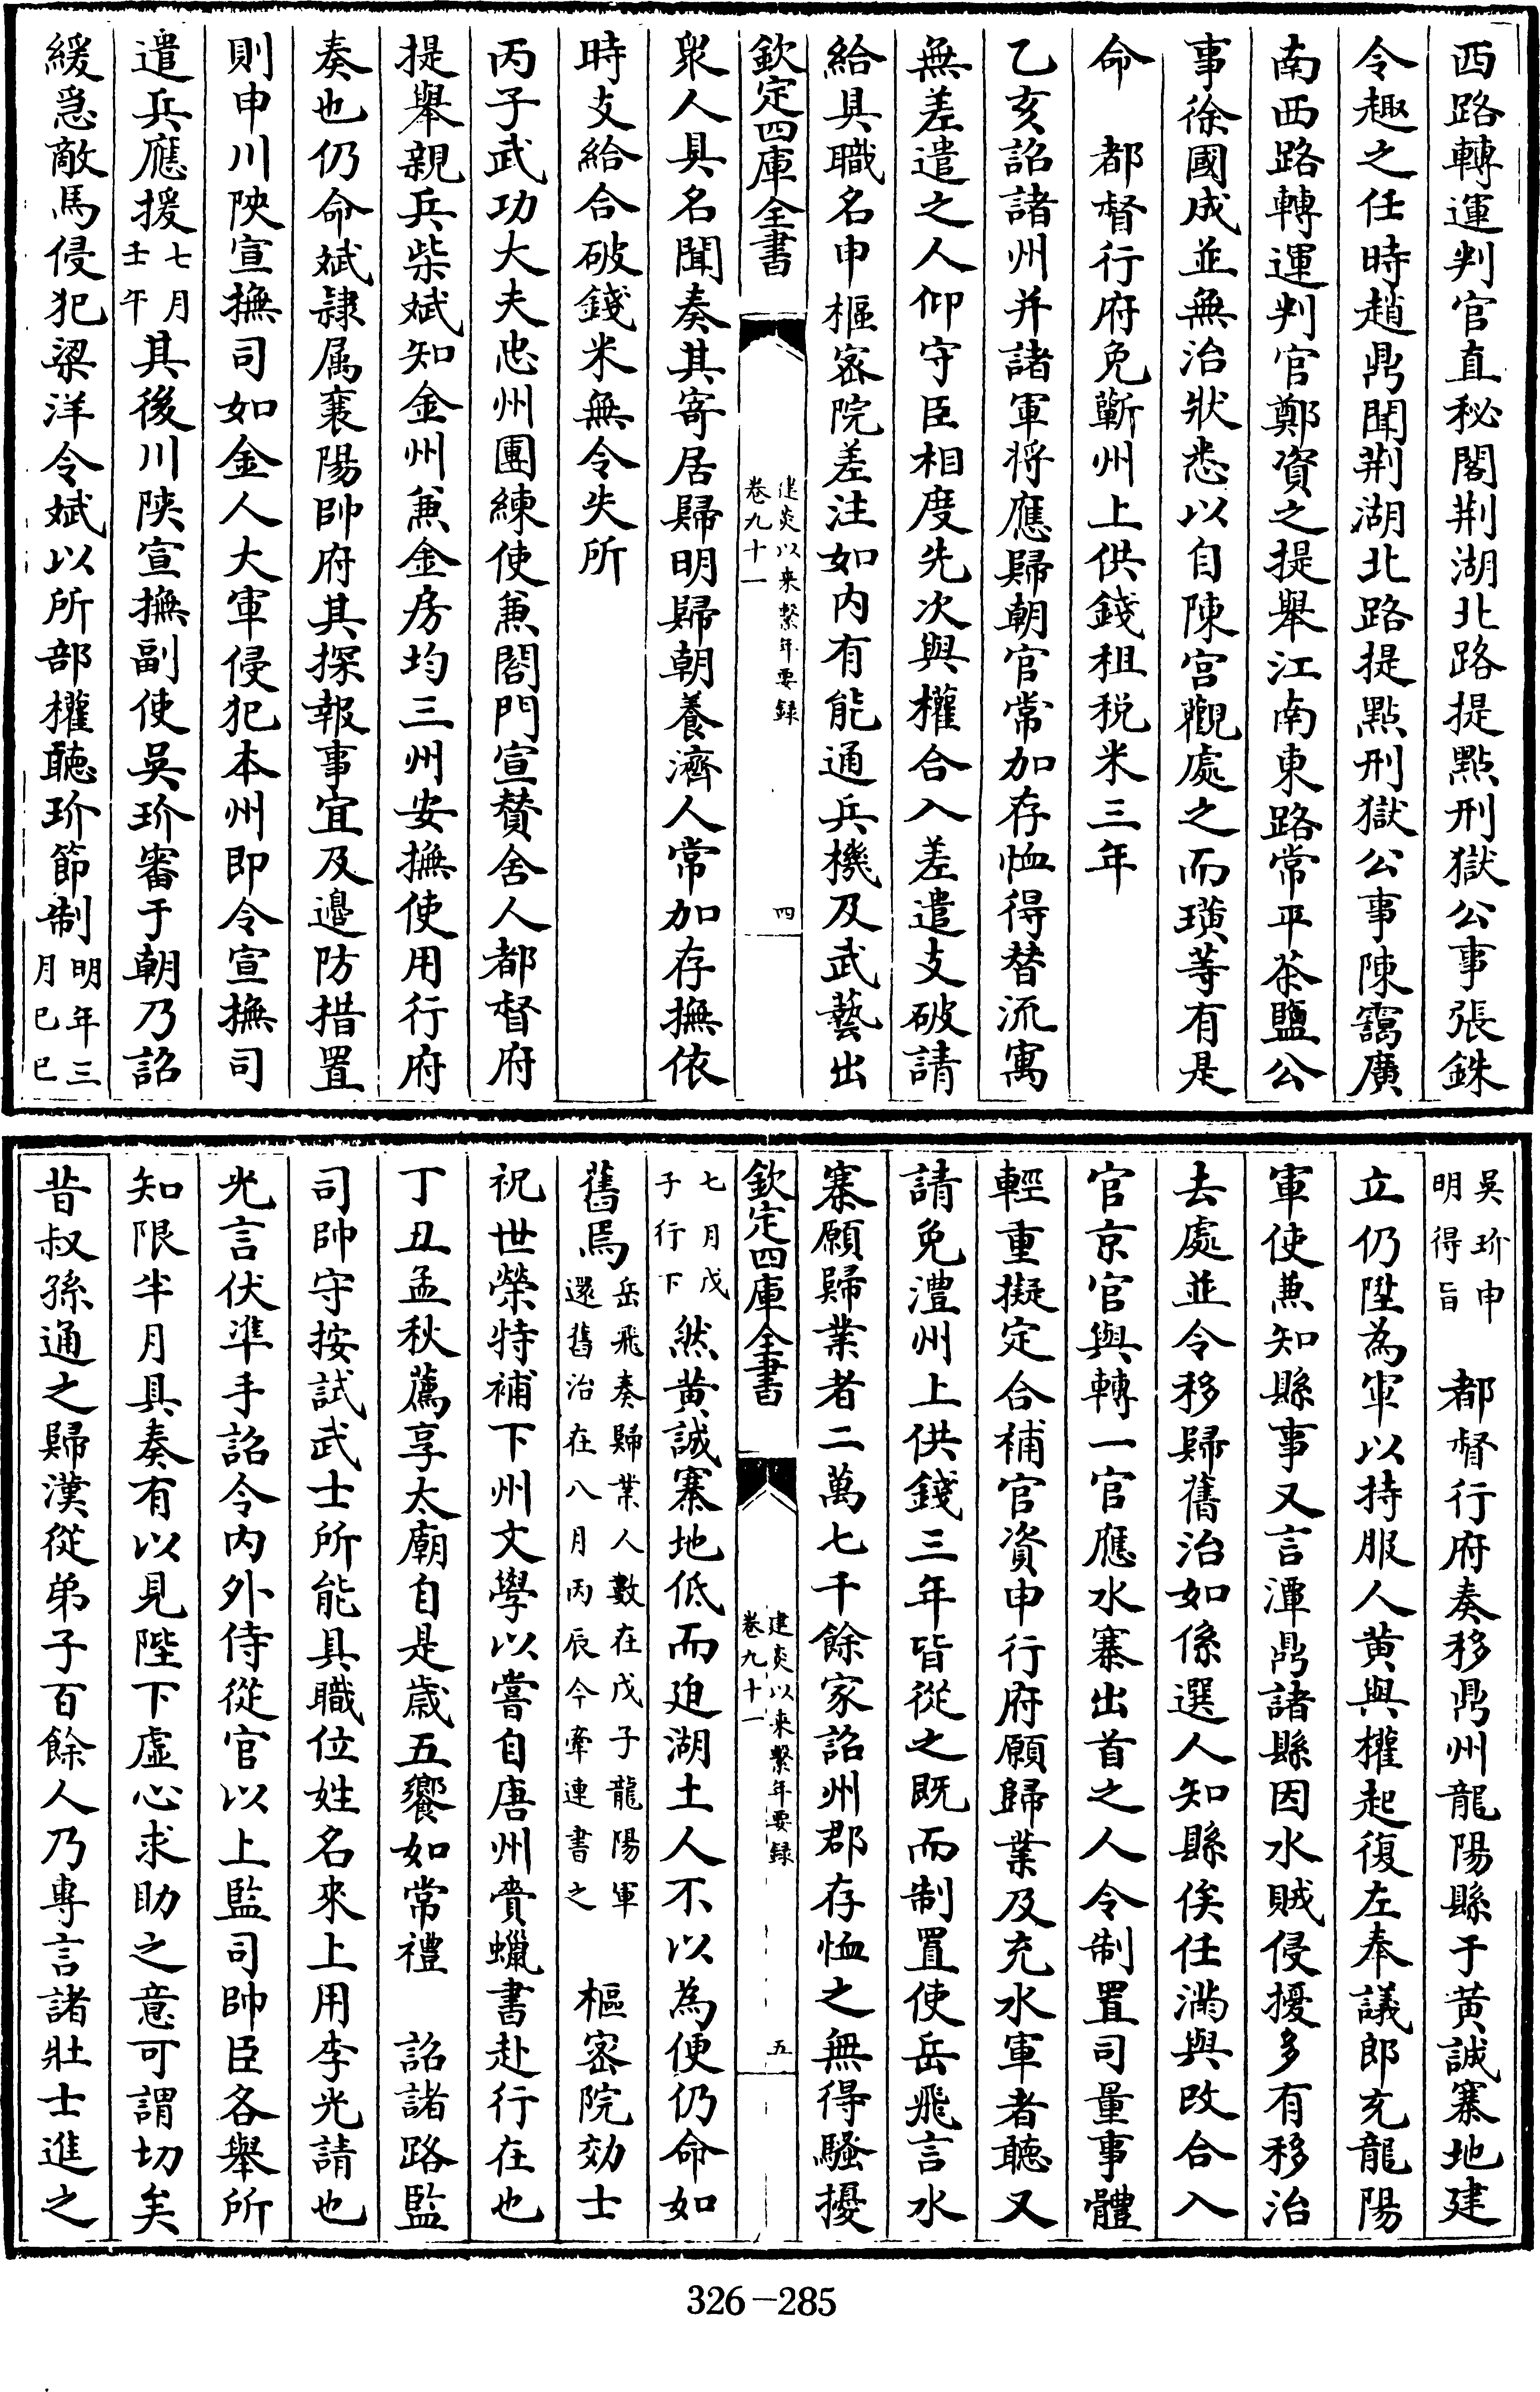 西路轉運判官直秘閣荆湖北路提點刑獄公事張銖
令趣之任時趙鼎聞荆湖北路提點刑獄公事陳靄廣
南西路轉運判官鄭資之提舉江南東路常平茶鹽公
事徐國成並無治狀悉以自陳宫觀處之而璜等有是
命　都督行府免蘄州上供錢租税米三年
乙亥詔諸州并諸軍將應歸朝官常加存恤得替流寓
無差遣之人仰守臣相度先次與權合入差遣支破請
給具職名申樞密院差注如内有能通兵機及武藝出
欽定四庫全書
建炎以来繫年要録
卷九十一
四
衆人具名聞奏其寄居歸明歸朝養濟人常加存撫依
時支給合破錢米無令失所
丙子武功大夫忠州團練使兼閤門宣贊舍人都督府
提舉親兵柴斌知金州兼金房均三州安撫使用行府
奏也仍命斌隸属襄陽帥府其探報事宜及邊防措置
則申川陜宣撫司如金人大軍侵犯本州即令宣撫司
遣兵應援七月
壬午其後川陜宣撫副使吳玠審于朝乃詔
緩急敵馬侵犯梁洋令斌以所部權聽玠節制明年三
月已巳
吳玠申
明得旨　都督行府奏移鼎州龍陽縣于黄誠寨地建
立仍陞為軍以持服人黄與權起復左奉議郎充龍陽
軍使兼知縣事又言潭鼎諸縣因水賊侵擾多有移治
去處並令移歸舊治如係選人知縣俟任滿與改合入
官京官與轉一官應水寨出首之人令制置司量事體
輕重擬定合補官資申行府願歸業及充水軍者聽又
請免澧州上供錢三年皆從之既而制置使岳飛言水
寨願歸業者二萬七千餘家詔州郡存恤之無得騷擾
欽定四庫全書
建炎以来繫年要録
卷九十一
五
七月戊
子行下然黄誠寨地低而廹湖土人不以為便仍命如
舊焉岳飛奏歸業人數在戊子龍陽軍
還舊治在八月丙辰今牽連書之　樞密院効士
祝世榮特補下州文學以嘗自唐州賫蠟書赴行在也
丁丑孟秋薦享太廟自是歲五饗如常禮　詔諸路監
司帥守按試武士所能具職位姓名來上用李光請也
光言伏凖手詔令内外侍從官以上監司帥臣各舉所
知限半月具奏有以見陛下虚心求助之意可謂切矣
昔叔孫通之歸漢從弟子百餘人乃專言諸壯士進之
326-285